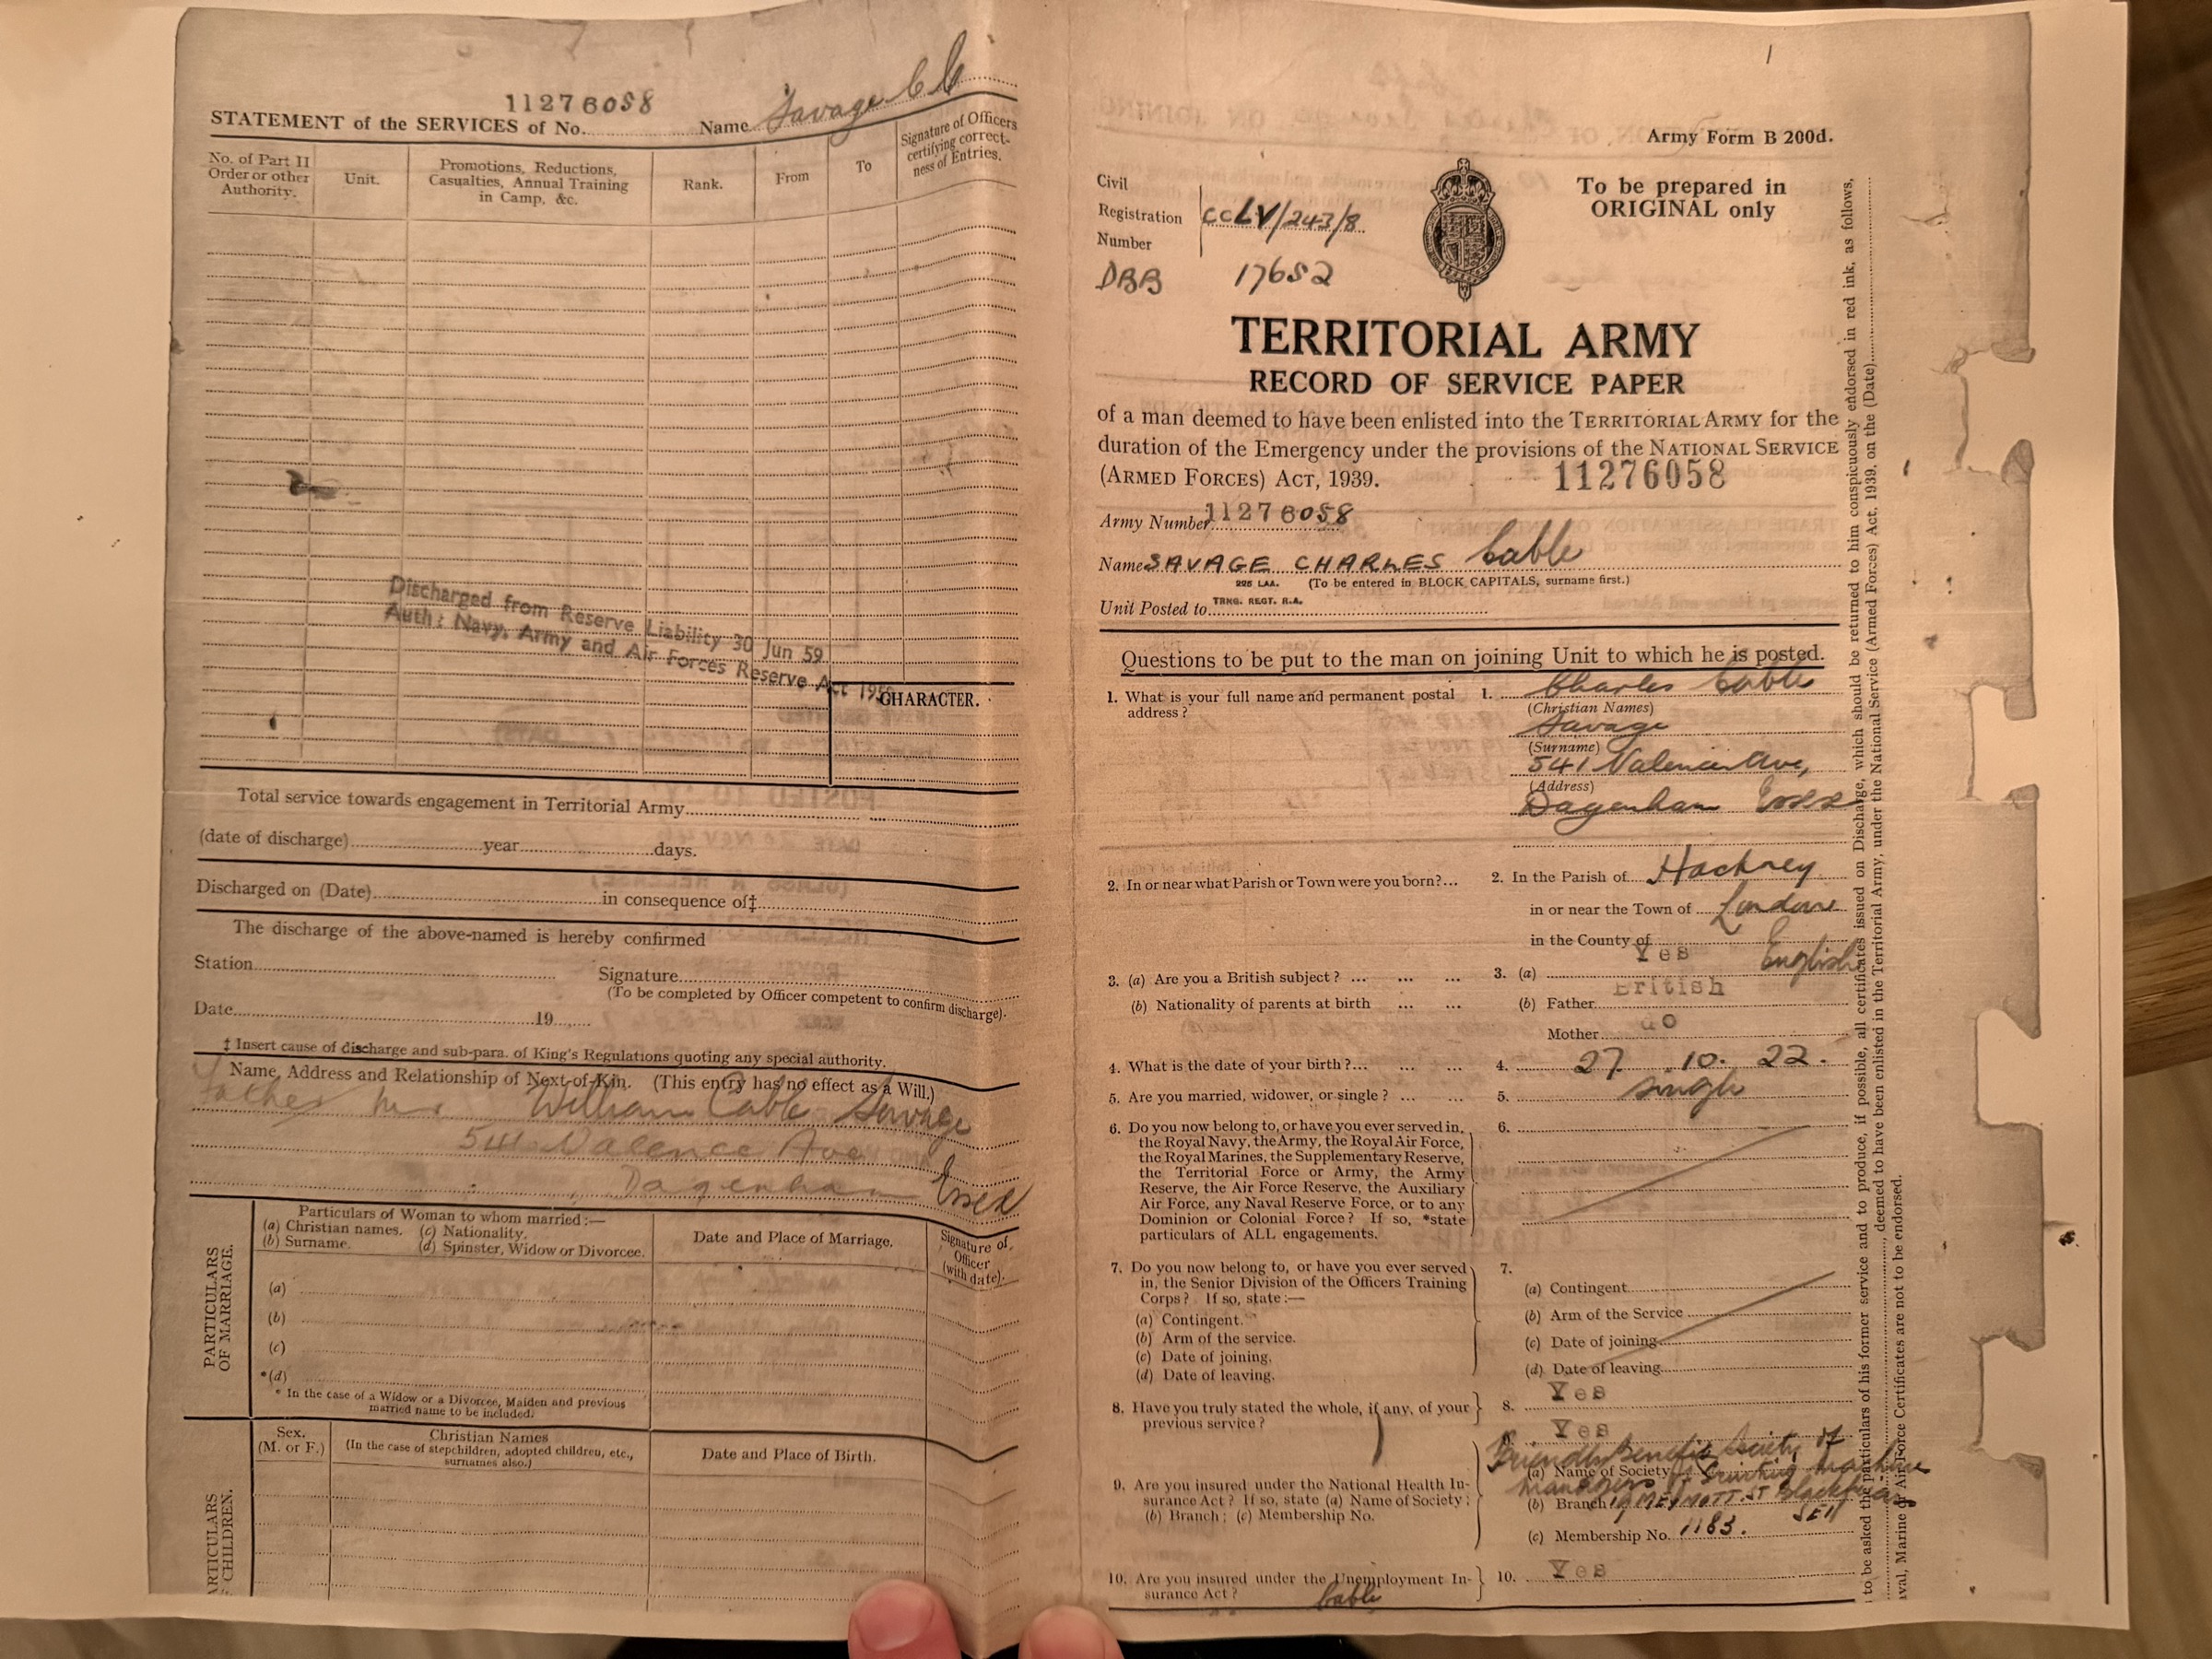 11276058
STATEMENT of the SERVICES of No. Name Savage C C
No. of Part II Order or other Authority.
Unit.
Promotions, Reductions, Casualties, Annual Training in Camp, &c.
Rank.
From
To
Signature of Officers certifying correctness of Entries.
Discharged from Reserve Liability 30 Jun 59
Auth: Navy, Army and Air Forces Reserve Act 195
CHARACTER.
Total service towards engagement in Territorial Army
(date of discharge) year days.
Discharged on (Date) in consequence of‡
The discharge of the above-named is hereby confirmed
Station Signature
(To be completed by Officer competent to confirm discharge).
Date 19
‡ Insert cause of discharge and sub-para. of King's Regulations quoting any special authority.
Name, Address and Relationship of Next-of-Kin. (This entry has no effect as a Will.)
Father William Cable Savage
541 Valence Ave
Dagenham Essex
PARTICULARS OF MARRIAGE.
Particulars of Woman to whom married:—
(a) Christian names. (c) Nationality.
(b) Surname. (d) Spinster, Widow or Divorcee.
Date and Place of Marriage.
Signature of Officer (with date).
(a)
(b)
(c)
*(d)
* In the case of a Widow or a Divorcee, Maiden and previous
married name to be included.
ARTICULARS
CHILDREN.
Sex.
(M. or F.)
Christian Names
(In the case of stepchildren, adopted children, etc.,
surnames also.)
Date and Place of Birth.
1
Army Form B 200d.
Civil
Registration CCLV/243/8
Number
DBB 17652
To be prepared in
ORIGINAL only
TERRITORIAL ARMY
RECORD OF SERVICE PAPER
of a man deemed to have been enlisted into the TERRITORIAL ARMY for the
duration of the Emergency under the provisions of the NATIONAL SERVICE
(ARMED FORCES) ACT, 1939.
11276058
Army Number 11276058
Name SAVAGE CHARLES Cable
225 LAA. (To be entered in BLOCK CAPITALS, surname first.)
Unit Posted to TRNG. REGT. R.A.
Questions to be put to the man on joining Unit to which he is posted.
1. What is your full name and permanent postal
address?
1. Charles Cable
(Christian Names)
Savage
(Surname)
541 Valence Ave,
(Address)
Dagenham Essex
2. In or near what Parish or Town were you born?...
2. In the Parish of Hackney
in or near the Town of London
in the County of
3. (a) Are you a British subject? ... ... ...
3. (a) Yes English
(b) Nationality of parents at birth ... ...
(b) Father British
Mother do
4. What is the date of your birth?... ... ...
4. 27. 10. 22.
5. Are you married, widower, or single? ... ...
5. single
6. Do you now belong to, or have you ever served in,
the Royal Navy, the Army, the Royal Air Force,
the Royal Marines, the Supplementary Reserve,
the Territorial Force or Army, the Army
Reserve, the Air Force Reserve, the Auxiliary
Air Force, any Naval Reserve Force, or to any
Dominion or Colonial Force? If so, *state
particulars of ALL engagements.
6.
7. Do you now belong to, or have you ever served
in, the Senior Division of the Officers Training
Corps? If so, state:—
(a) Contingent.
(b) Arm of the service.
(c) Date of joining.
(d) Date of leaving.
7.
(a) Contingent
(b) Arm of the Service
(c) Date of joining
(d) Date of leaving
8. Have you truly stated the whole, if any, of your
previous service?
8. Yes
9. Are you insured under the National Health In-
surance Act? If so, state (a) Name of Society;
(b) Branch; (c) Membership No.
9. Yes
Friendly Benefit Society of
(a) Name of Society Printing Machine
Managers
(b) Branch 19 MEYMOTT. ST Blackfriars
SE1
(c) Membership No. 1183.
10. Are you insured under the Unemployment In-
surance Act?
10. Yes
Cable
to be asked the particulars of his former service and to produce, if possible, all certificates issued on Discharge, which should be returned to him conspicuously endorsed in red ink, as follows,
, deemed to have been enlisted in the Territorial Army, under the National Service (Armed Forces) Act, 1939, on the (Date)
aval, Marine or Air Force Certificates are not to be endorsed.